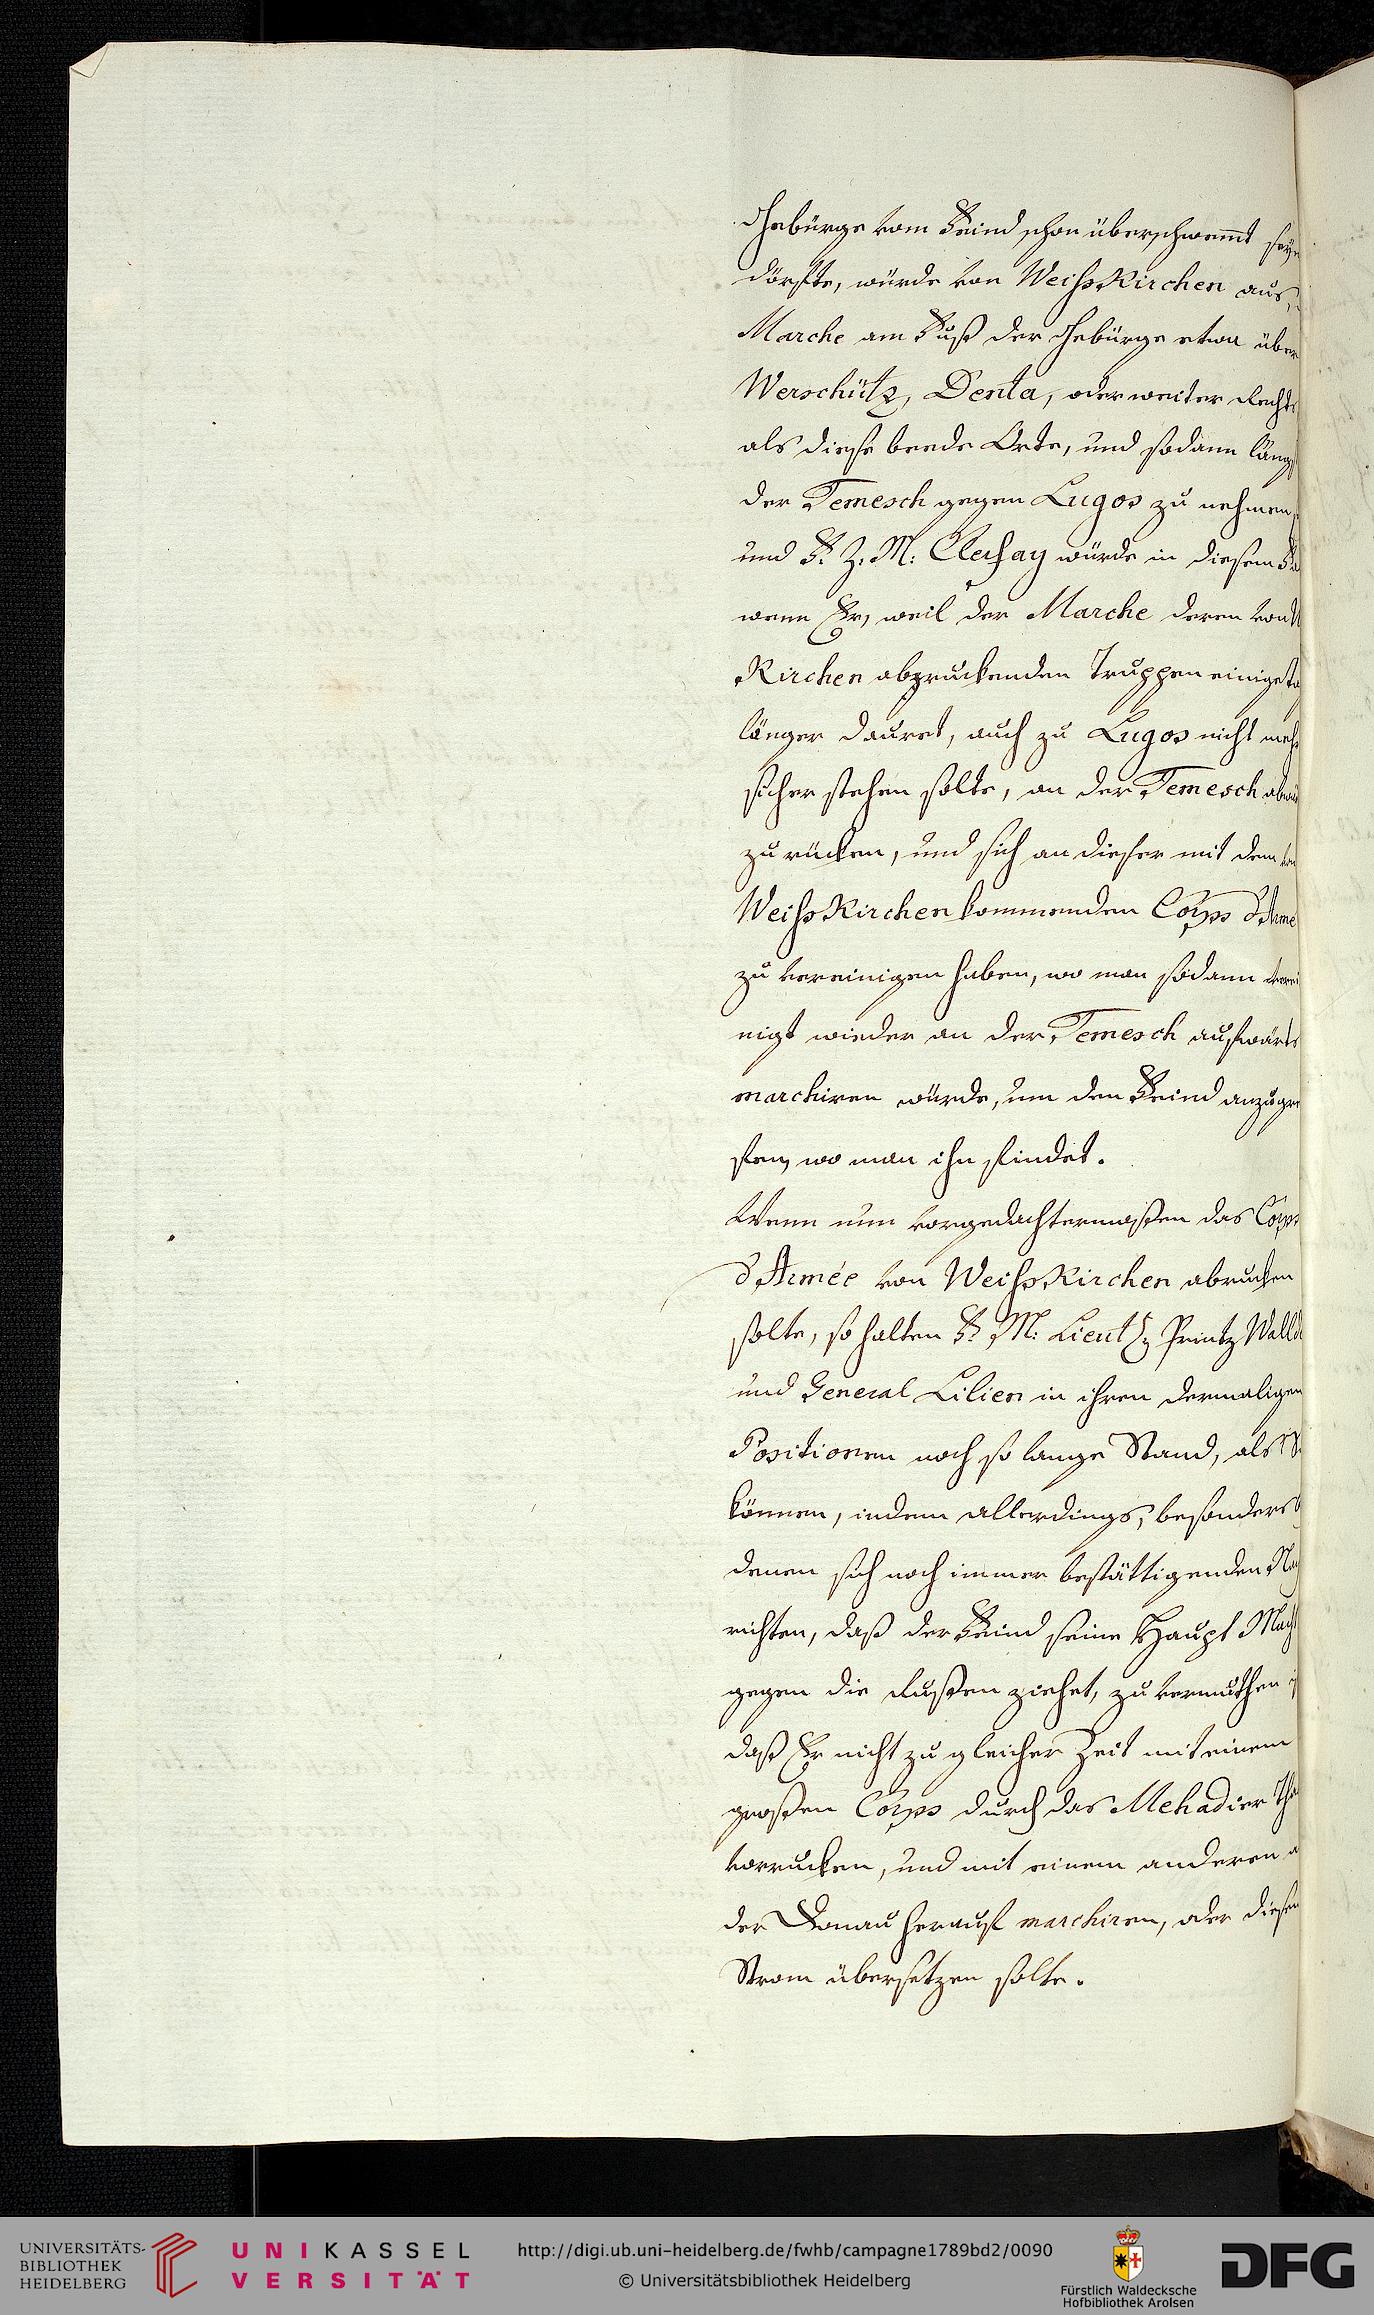 Gebürge vom Feind schon überschwemt seyn
dörfte, würde von Weiss Kirchen aus,
Marche am Fuß der Gebürge etwa über
Werschütz, Denta, oder weiter Rechts
als diese beede Orte, und sodann längst
der Temesch gegen Lugos zu nehmen,
und F. Z. M: Clerfay würde in diesem
wenn Er, weil der Marche deren von
Kirchen abzruckenden Truppen einige
länger dauret, auch zu Lugos nicht mehr
sicher stehen solte, an der Temesch
zu rücken, und sich an dieser mit dem
Weiss Kirchen kommenden Corps d'Armé
zu vereinigen haben, wo man sodann verei
nigt wieder an der Temesch aufwärts
marchiren würde, um den Feind anzugrei
fen, wo man ihn findet.
Wenn nun vorgedachtermaßen das Corps
d'Armée von Weiss Kirchen abrucken
solte, so halten F. M: Lieut: Printz
und General Lilien in ihren dermaligen
Positionen noch so lange Stand, als
können, indem allerdings, besonders
denen sich noch immer bestättigenden Nach
richten, daß der Feind seine Haupt Macht
gegen die Rußen ziehet, zu vermuthen
daß Er nicht zu gleicher Zeit mit einem
großen Corps durch das Mehadier Tha
vorrucken, und mit einem anderen
der Donau herauf marchiren, oder diesen
Strom übersetzen solte.
UNIVERSITÄTS-
BIBLIOTHEK
HEIDELBERG
UNIKASSEL
VERSITÄT
http://digi.ub.uni-heidelberg.de/fwhb/campagne1789bd2/0090
© Universitätsbibliothek Heidelberg
Fürstlich Waldecksche
Hofbibliothek Arolsen
DFG